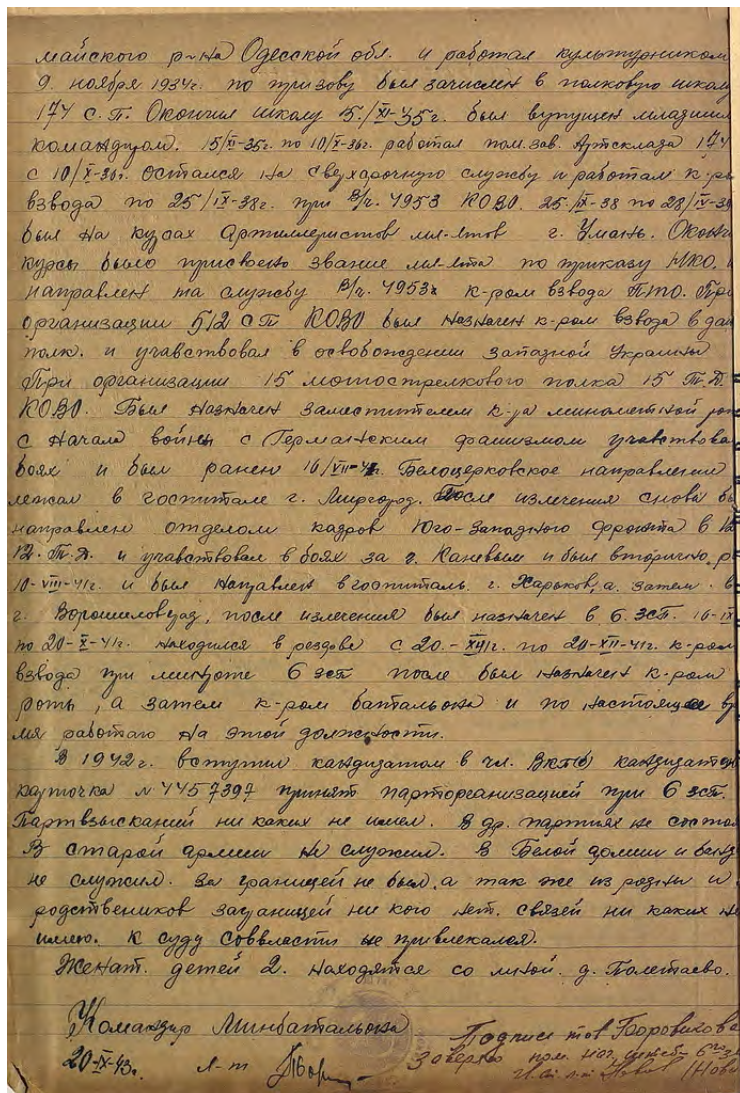 майского р-на Одесской обл. и работал культурником
9. ноября 1934г. по призову был зачислен в полковую школу
174 с.п. Окончил школу 5./XI-35г. был выпущен младшим
командиром. 15/XI-35г. по 10/X-36г. работал пом. зав. Артсклада 174
с 10/X-36г. остался на сверхсрочную службу и работал к-ром
взвода по 25/IX-38г. при в/ч. 4953 КОВО. 25/IX-38 по 28/IV-39
был на курсах Артиллеристов мл-лтов г. Умань. Окончив
курсы было присвоено звание мл-лта по приказу НКО. и
направлен на службу в/ч. 4953 к-ром взвода ПТО. При
организации 512 СП КОВО был назначен к-ром взвода в дан
полк. и учавствовал в освобождении западной Украины
При организации 15 мотострелкового полка 15 Т.Д.
КОВО. Был назначен заместителем к-ра минометной ро
с начала войны с Германским фашизмом учавствова
боях и был ранен 16/VII-41г. Белоцерковское направление
лежал в госпитале г. Миргород. После излечения снова бы
направлен отделом кадров Юго-Западного фронта в 12
12. Т.Д. и учавствовал в боях за г. Каневым и был вторично р
10-VIII-41г. и был направлен в госпиталь г. Харьков, а затем в
г. Ворошиловград, после излечения был назначен в 6. зсп. 16-IX
по 20-X-41г. находился в резерве с 20.- по 20-XII-41г. к-ром
взвода при минроте 6 зсп после был назначен к-ром
роты, а затем к-ром баттальона и по настоящее вр
мя работаю на этой должности.
В 1942г. вступил кандидатом в чл. ВКПб кандидатск
карточка № 4457397 принят парторганизацией при 6 зсп.
Партвзысканий ни каких не имел. В др. партиях не состоял
В старой армии не служил. В Белой армии и банд
не служил. За границей не был, а так же из родни и
родствеников заграницей ни кого нет. связей ни каких не
имею. К суду Соввласти не привлекался.
Женат. детей 2. находятся со мной. д. Полетаево.
Командир Минбатальона
Подписи тов Боровикова
20-IX-43г. л-т
Заверяю пом. нач. штаба 6го